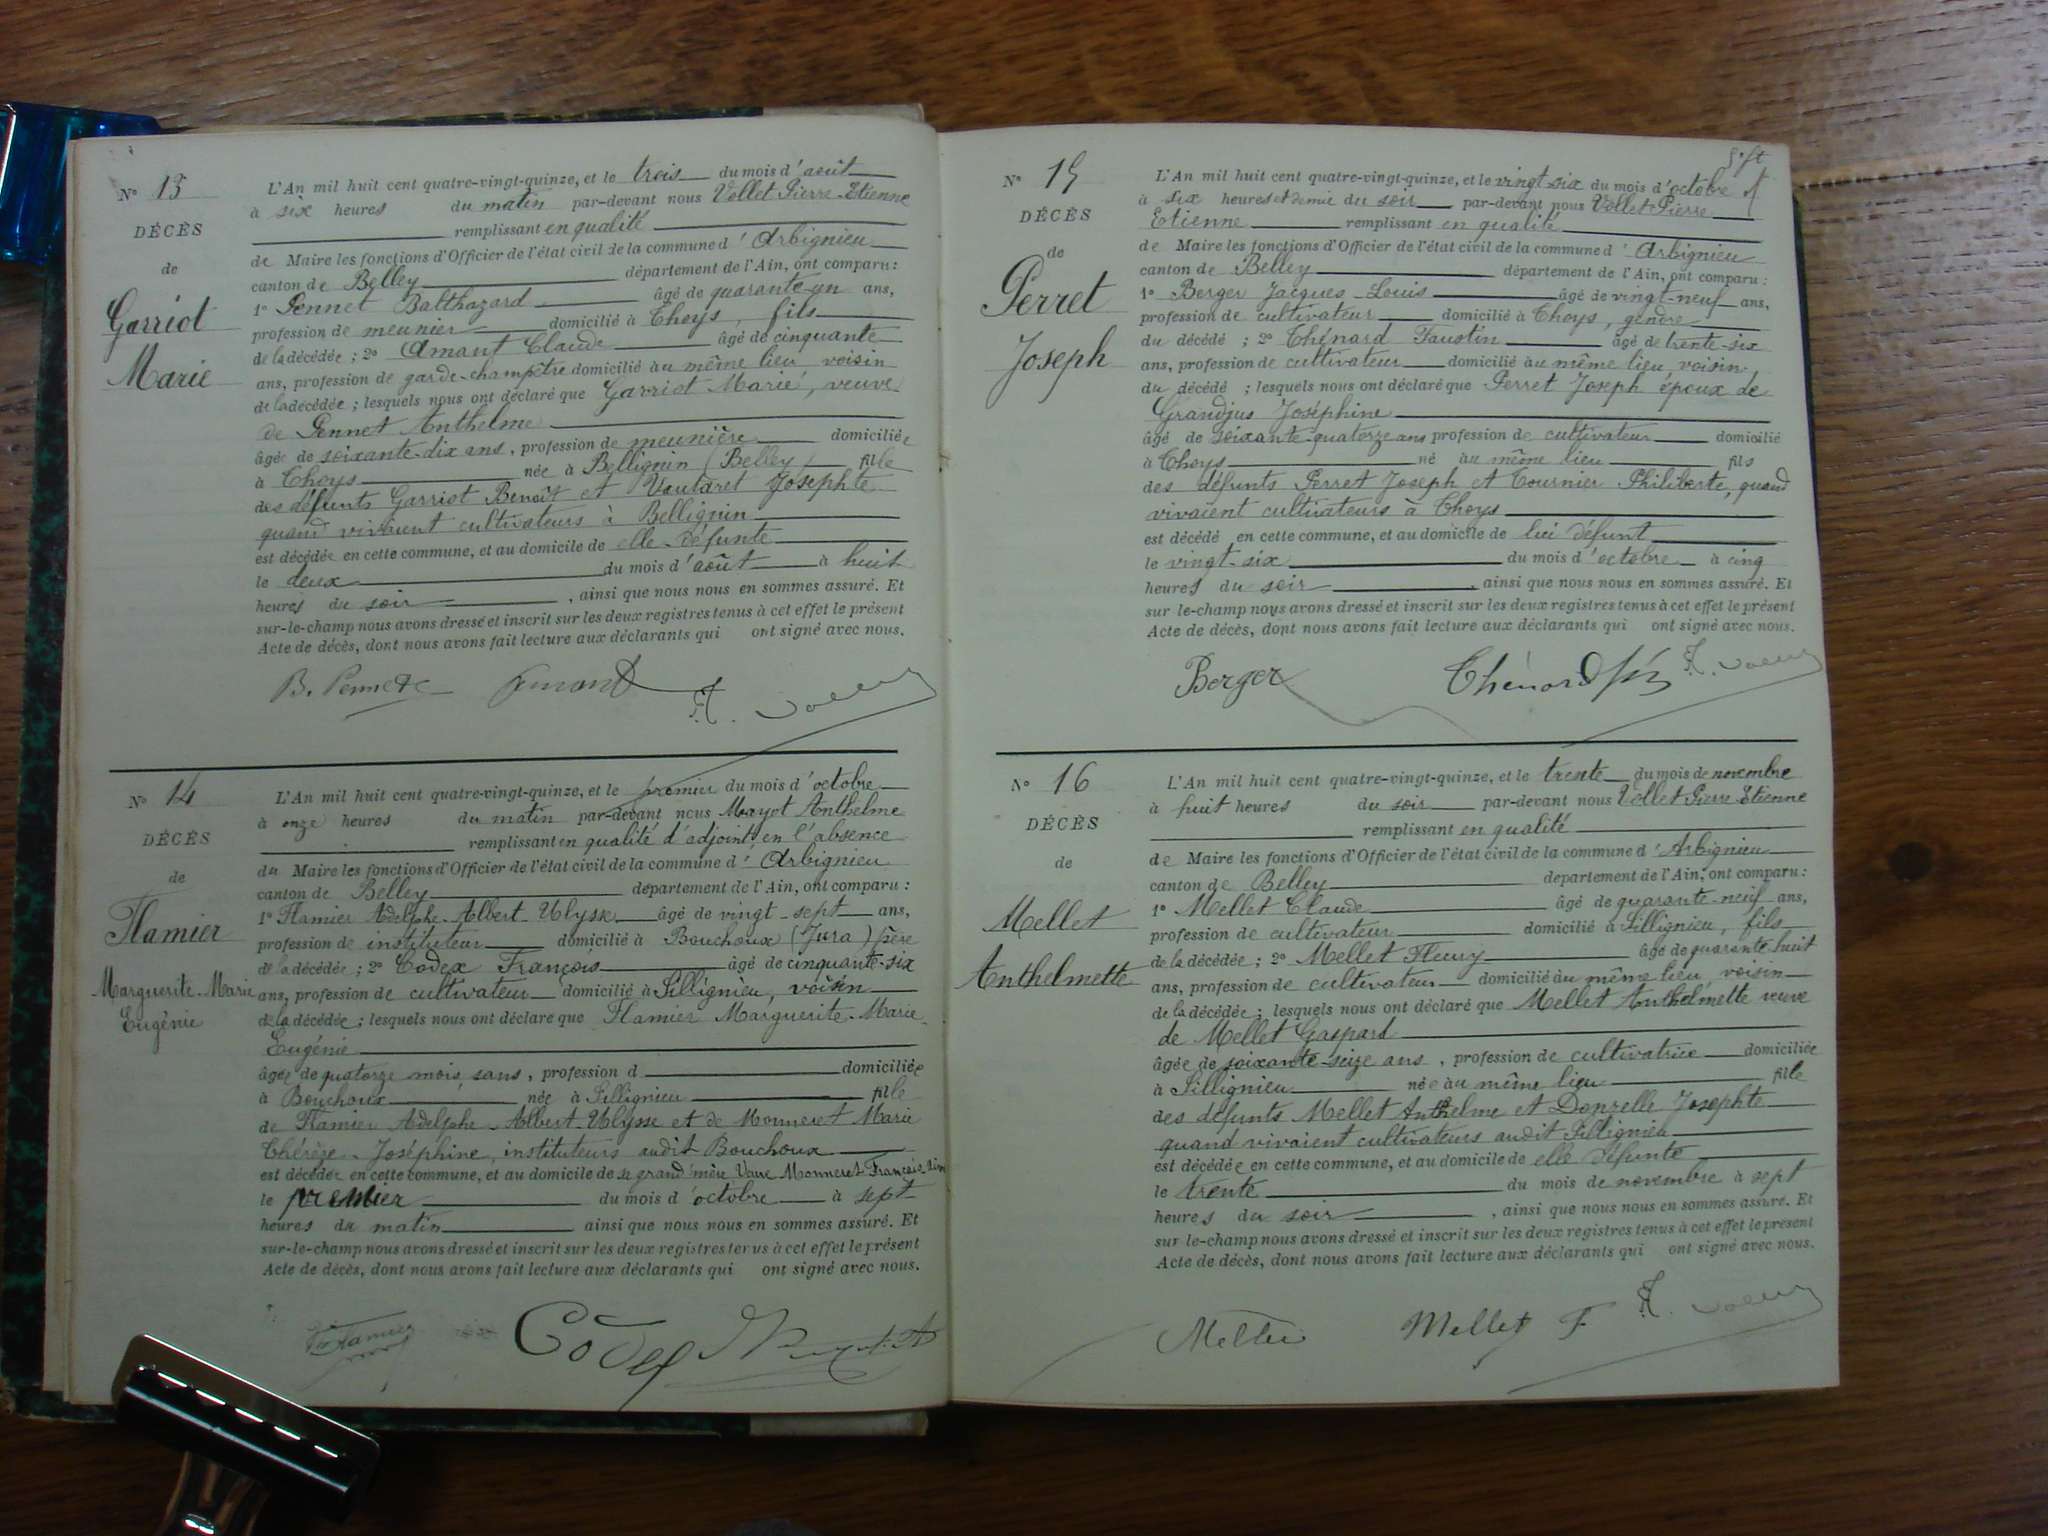 N° 13
DÉCÈS
de
Garriot
Marie
L'An mil huit cent quatre-vingt-quinze, et le trois du mois d'août
à six heures du matin par-devant nous Vollet Pierre-Etienne
remplissant en qualité
de Maire les fonctions d'Officier de l'état civil de la commune d'Arbignieu
canton de Belley département de l'Ain, ont comparu :
1° Pennet Balthazard âgé de quarante-un ans,
profession de meunier domicilié à Thoys, fils
de la décédée ; 2° Amant Claude âgé de cinquante
ans, profession de garde-champêtre domicilié au même lieu, voisin
de la décédée ; lesquels nous ont déclaré que Garriot Marie, veuve
de Pennet Anthelme
âgée de soixante-dix ans, profession de meunière domiciliée
à Thoys née à Bellignin (Belley) fille
des défunts Garriot Benoît et Vautaret Josephte
quand vivaient cultivateurs à Bellignin
est décédée en cette commune, et au domicile de elle-défunte
le deux du mois d'août à huit
heures du soir, ainsi que nous nous en sommes assuré. Et
sur-le-champ nous avons dressé et inscrit sur les deux registres tenus à cet effet le présent
Acte de décès, dont nous avons fait lecture aux déclarants qui ont signé avec nous.
B. Pennet Amant Vollet
N° 14
DÉCÈS
de
Flamier
Marguerite-Marie
Eugénie
L'An mil huit cent quatre-vingt-quinze, et le premier du mois d'octobre
à onze heures du matin par-devant nous Mayot Anthelme
remplissant en qualité d'adjoint, en l'absence
du Maire les fonctions d'Officier de l'état civil de la commune d'Arbignieu
canton de Belley département de l'Ain, ont comparu :
1° Flamier Adelphe-Albert-Ulysse âgé de vingt-sept ans,
profession de instituteur domicilié à Bouchoux (Jura) père
de la décédée ; 2° Codex François âgé de cinquante-six
ans, profession de cultivateur domicilié à Sillignieu, voisin
de la décédée ; lesquels nous ont déclaré que Flamier Marguerite-Marie
Eugénie
âgée de quatorze mois, sans, profession d domiciliée
à Bouchoux née à Sillignieu fille
de Flamier Adelphe-Albert-Ulysse et de Monneret Marie
Thérèze-Joséphine, instituteurs audit Bouchoux
est décédée en cette commune, et au domicile de sa grand'mère Vauve Monneret François
le premier du mois d'octobre à sept
heures du matin ainsi que nous nous en sommes assuré. Et
sur-le-champ nous avons dressé et inscrit sur les deux registres tenus à cet effet le présent
Acte de décès, dont nous avons fait lecture aux déclarants qui ont signé avec nous.
Flamier Codex
N° 15
DÉCÈS
de
Perret
Joseph
L'An mil huit cent quatre-vingt-quinze, et le vingt-six du mois d'octobre
à six heures et demie du soir par-devant nous Vollet Pierre
Etienne remplissant en qualité
de Maire les fonctions d'Officier de l'état civil de la commune d'Arbignieu
canton de Belley département de l'Ain, ont comparu :
1° Berger Jacques-Louis âgé de vingt-neuf ans,
profession de cultivateur domicilié à Thoys, gendre
du décédé ; 2° Thénard Faustin âgé de trente-six
ans, profession de cultivateur domicilié au même lieu, voisin
du décédé ; lesquels nous ont déclaré que Perret Joseph époux de
Grandjus Joséphine
âgé de soixante-quatorze ans profession de cultivateur domicilié
à Thoys né au même lieu fils
des défunts Perret Joseph et Tournier Philiberte, quand
vivaient cultivateurs à Thoys
est décédé en cette commune, et au domicile de lui défunt
le vingt-six du mois d'octobre à cinq
heures du soir, ainsi que nous nous en sommes assuré. Et
sur-le-champ nous avons dressé et inscrit sur les deux registres tenus à cet effet le présent
Acte de décès, dont nous avons fait lecture aux déclarants qui ont signé avec nous.
Berger Thénard Vollet
N° 16
DÉCÈS
de
Mellet
Anthelmette
L'An mil huit cent quatre-vingt-quinze, et le trente du mois de novembre
à huit heures du soir par-devant nous Vollet Pierre-Etienne
remplissant en qualité
de Maire les fonctions d'Officier de l'état civil de la commune d'Arbignieu
canton de Belley département de l'Ain, ont comparu :
1° Mellet Claude âgé de quarante-neuf ans,
profession de cultivateur domicilié à Sillignieu, fils
de la décédée ; 2° Mellet Fleury âgé de quarante-huit
ans, profession de cultivateur domicilié au même lieu, voisin
de la décédée ; lesquels nous ont déclaré que Mellet Anthelmette veuve
de Mellet Gaspard
âgée de soixante-seize ans, profession de cultivatrice domiciliée
à Sillignieu née au même lieu fille
des défunts Mellet Anthelme et Donzelle Josephte
quand vivaient cultivateurs audit Sillignieu
est décédée en cette commune, et au domicile de elle défunte
le trente du mois de novembre à sept
heures du soir, ainsi que nous nous en sommes assuré. Et
sur-le-champ nous avons dressé et inscrit sur les deux registres tenus à cet effet le présent
Acte de décès, dont nous avons fait lecture aux déclarants qui ont signé avec nous.
Mellet Mellet F Vollet